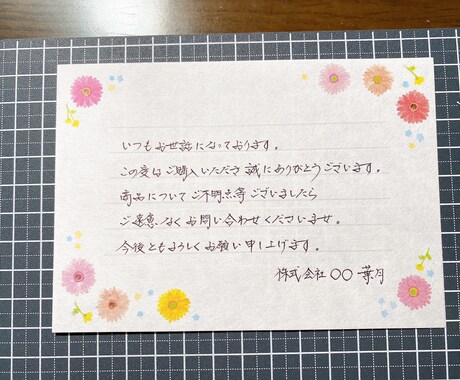 いつもお世話になっております。
この度はご購入いただき誠にありがとうございます。
商品についてご不明点等ございましたら
ご遠慮なくお問い合わせくださいませ。
今後ともよろしくお願い申し上げます。
株式会社〇〇 葉月